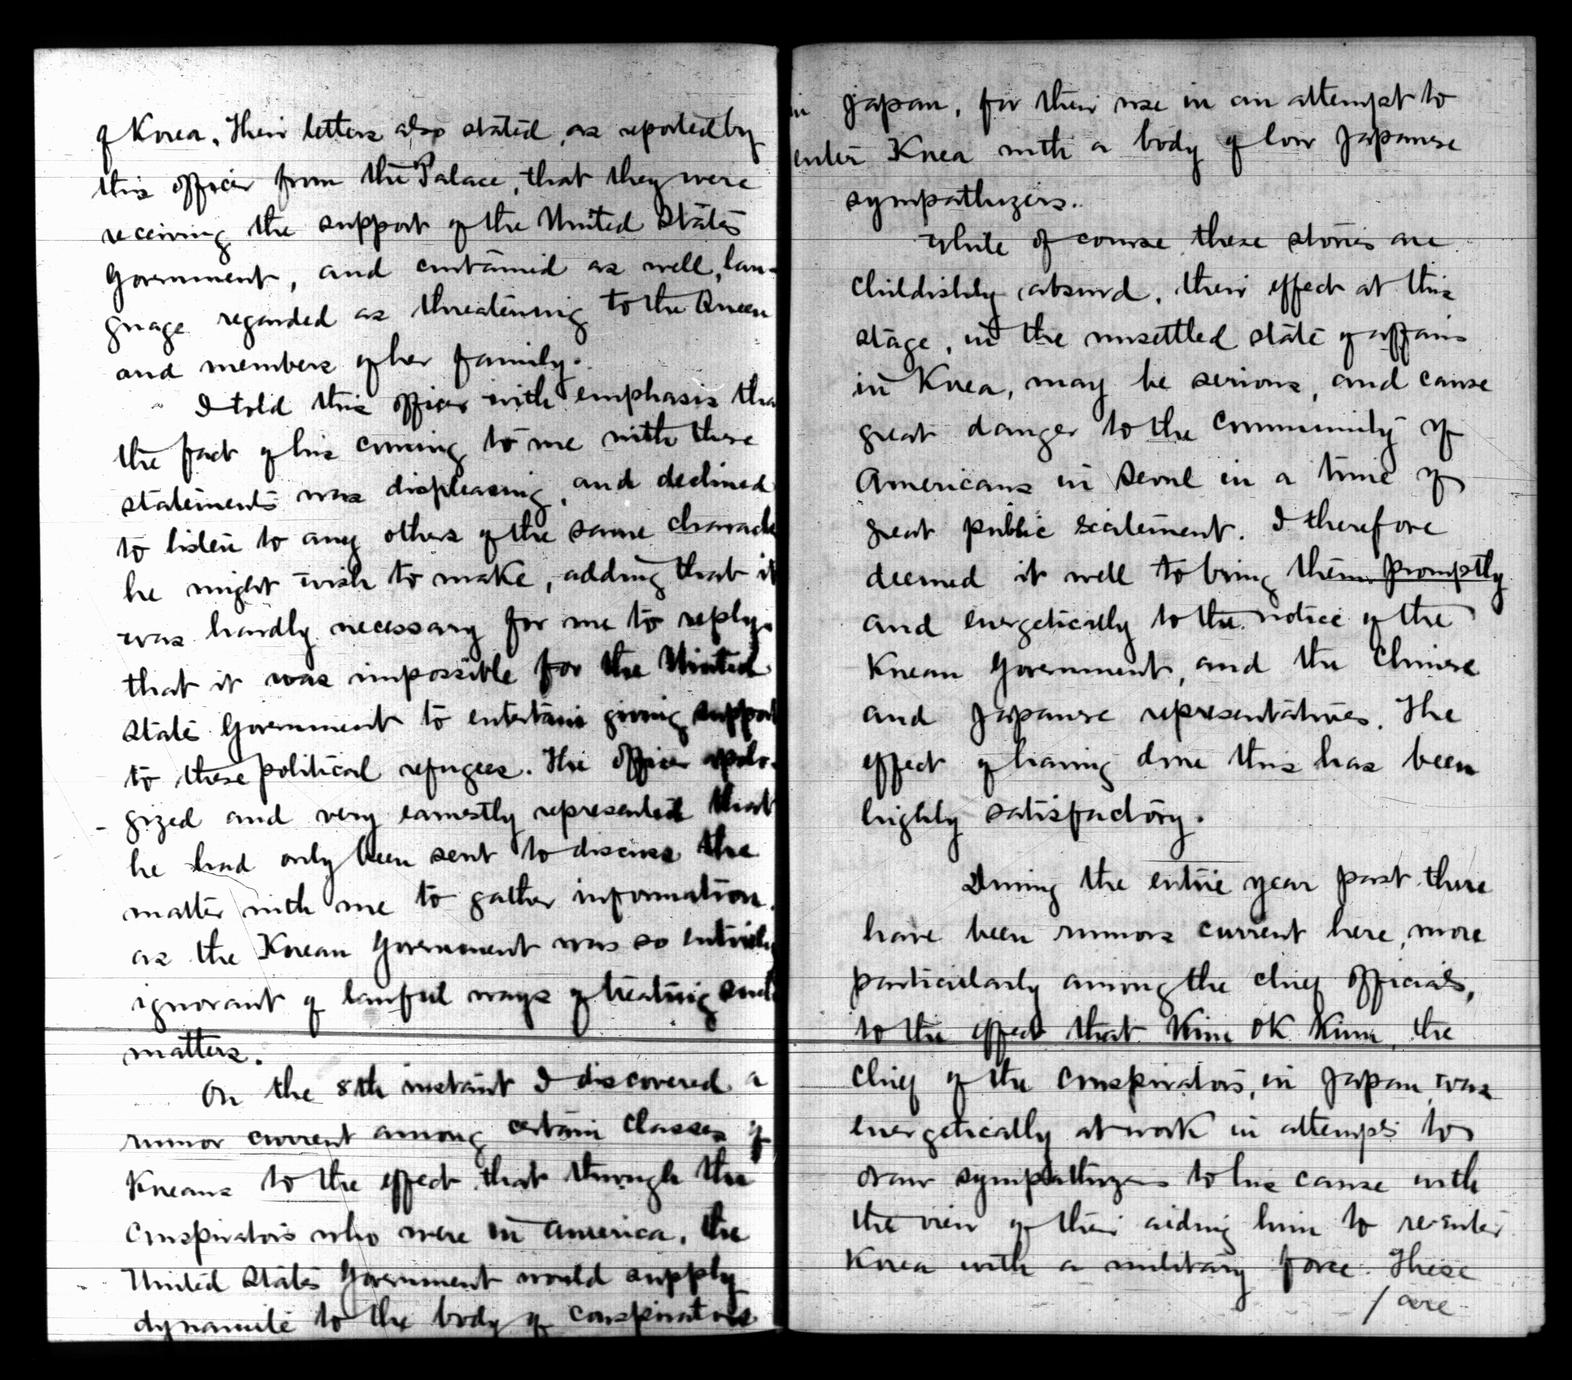 of Korea. Their letters also stated, as reported by
this officer from the Palace, that they were
receiving the support of the United States
Government, and contained as well, lan-
guage regarded as threatening to the Queen
and members of her family.
I told this officer with emphasis tha
the fact of his coming to me with these
statements was displeasing, and declined
to listen to any others of the same characte
he might wish to make, adding that it
was hardly necessary for me to reply.
that it was impossible for the United
States Government to entertain giving support
to these political refugees. The officer apolo-
gized and very earnestly represented that
he had only been sent to discuss the
matter with me to gather information.
as the Korean Government was so entirely
ignorant of lawful ways of treating such
matters.
On the 8th instant I discovered a
rumor current among certain classes of
Koreans to the effect that through the
conspirators who were in America, the
United States Government would supply
dynamite to the body of conspirators
in Japan, for their use in an attempt to
enter Korea with a body of low Japanese
sympathizers.
While of course these stories are
childishly absurd, their effect at this
stage, in the unsettled state of affairs
in Korea, may be serious, and cause
great danger to the community of
Americans in Seoul in a time of
great public excitement. I therefore
deemed it well to bring them promptly
and energetically to the notice of the
Korean Government, and the Chinese
and Japanese representatives. The
effect of having done this has been
highly satisfactory.
During the entire year past there
have been rumors current here, more
particularly among the chief officials,
to the effect that Kim OK Kiun, the
chief of the conspirators, in Japan, was
energetically at work in attempts to
draw sympathizers to his cause with
the view of their aiding him to re-enter
Korea with a military force. These
/ are